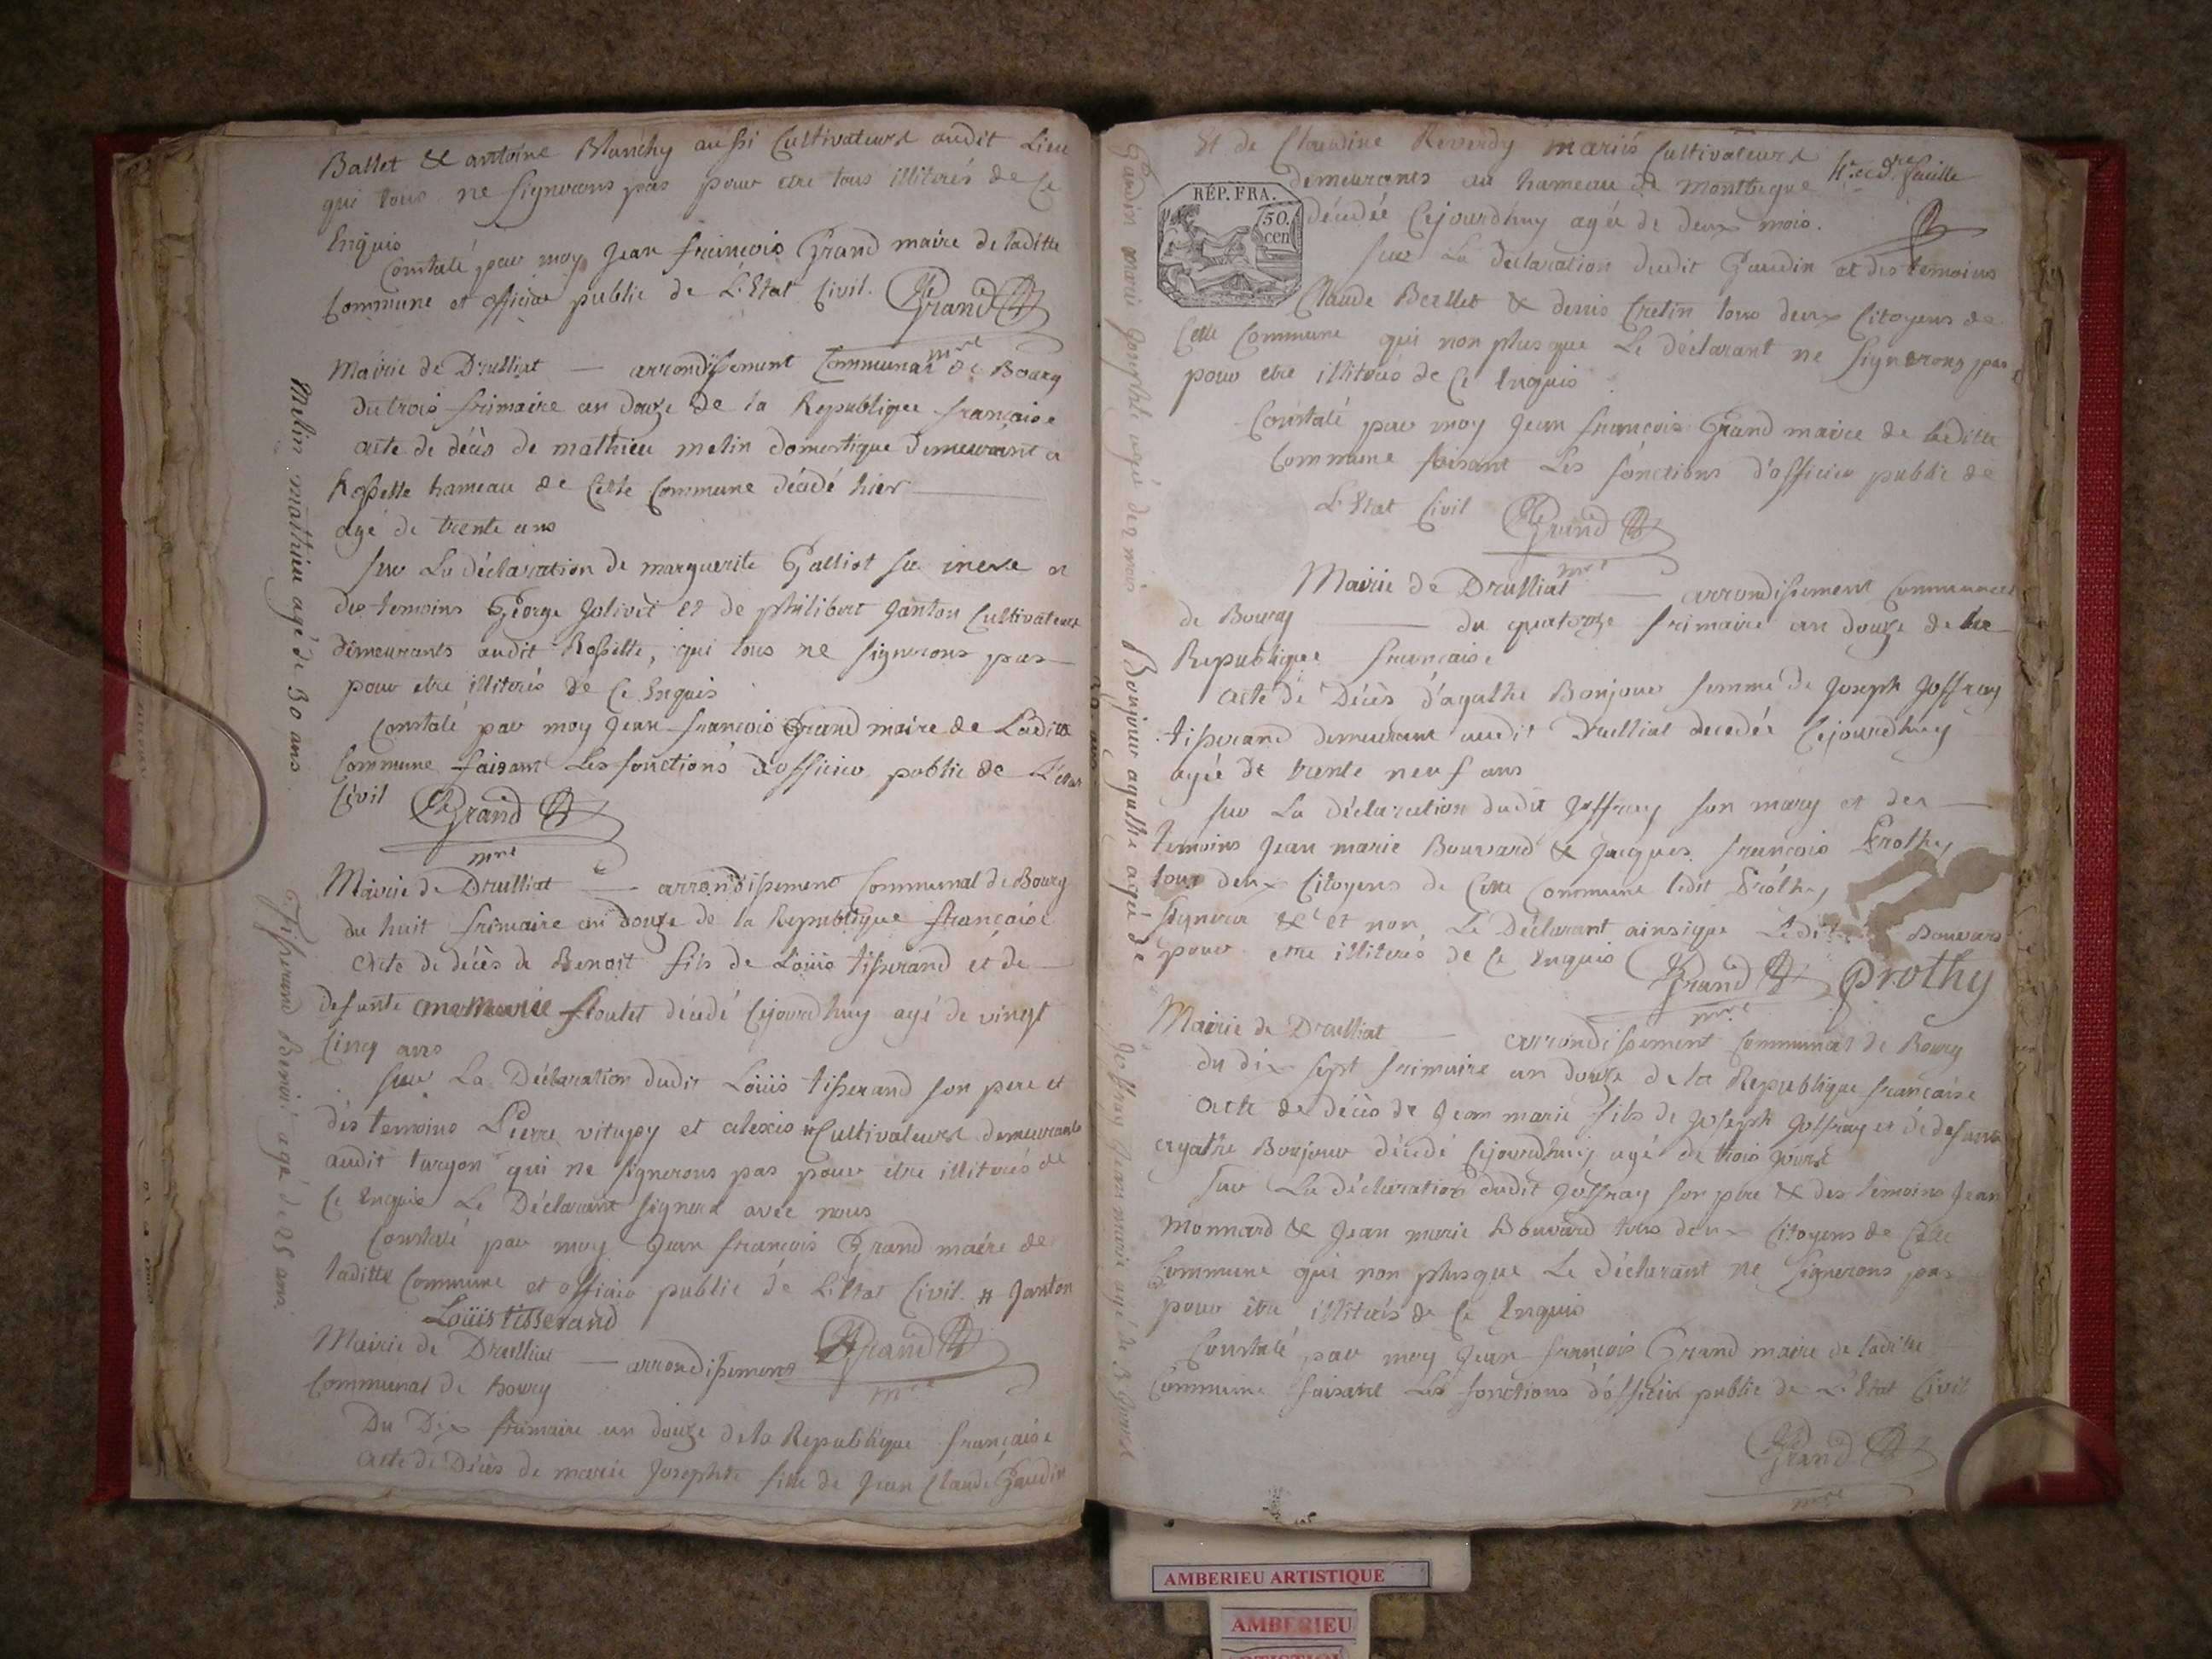 Ballet & antoine Blanchy aussi Cultivateurs audit Lieu
qui tous ne signerons pas pour etre tous illiterés de Ce
Enquis
Constaté par moy Jean françois Grand maire de laditte
Commune et officier public de L'Etat Civil. Grand
mre
Mairie de Drulliat — arrondissement Communal de Bourg
du trois frimaire an douze de la Republique française
acte de décès de mathieu melin domestique demeurant a
Rossette hameau de Cette Commune décédé hier
agé de trente ans
sur La déclaration de marguerite Galliot sa mere et
des temoins George Jolivet et de philibert Janton Cultivateurs
demeurants audit Rossette, qui tous ne signerons pas
pour etre illiterés de Ce Enquis
Constaté par moy Jean françois Grand maire de Laditte
Commune faisant Les fonctions d'officier public de L'etat
Civil Grand
mre
Melin mathieu agé de 30 ans
Mairie de Drulliat — arrondissement Communal de Bourg
du huit frimaire an douze de la Republique française
Acte de décès de Benoit fils de Loüis tisserand et de
defunte anemarie floutet décédé Cejourdhuy agé de vingt
Cinq ans
sur La Déclaration dudit Loüis tisserand son pere et
des temoins Pierre vitupy et alexis # Cultivateurs demeurants
audit turgon qui ne signerons pas pour etre illiterés de
Ce Enquis Le Déclarant signera avec nous
Constaté par moy Jean françois Grand maire de
laditte Commune et officier public de L'Etat Civil. # Janton
Loüis tisserand
Grand
mre
Tisserand Benoit agé de 25 ans
Mairie de Drulliat — arrondissement
Communal de Bourg
Du Dix frimaire an douze de la Republique française
acte de Décès de marie Josephte fille de Jean Claude Gaudin
Et de Claudine Reverdy mariés Cultivateurs
demeurants au hameau de Montbegue
décédée Cejourdhuy agée de deux mois.
4e et dre feuille
RÉP. FRA.
50.
cen
sur La declaration dudit Gaudin et des temoins
Claude Berllet & denis Cretin tous deux Citoyens de
Cette Commune qui non plus que Le déclarant ne signerons pas
pour etre illiterés de Ce Enquis
Constaté par moy Jean françois Grand maire de laditte
Commune faisant Les fonctions d'officier public de
L'Etat Civil Grand
mre
Gaudin marie Josephte agée de 2 mois
Mairie de Drulliat — arrondissement Communal
de Bourg — du quatorze frimaire an douze de la
Republique française
acte de Décès d'agathe Bonjour femme de Joseph Joffray
tisserand demeurant audit Drulliat decedée Cejourdhuy
agée de trente neuf ans
sur La déclaration dudit Joffray son mary et des
temoins Jean marie Bouvard & Jacques françois Prothy
tous deux Citoyens de Cette Commune ledit Prothy
signera & et non Le Déclarant ainsique Ledit Bouvard
pour etre illiterés de Ce Enquis Grand Prothy
mre
Bonjour agathe agée de
39 ans
Mairie de Drulliat — arrondissement Communal de Bourg
du dix sept frimaire an douze de la Republique française
acte de décès de Jean marie fils de Joseph Joffray et de defunte
agathe Bonjour décédé Cejourdhuy agé de trois jours
sur La déclaration dudit Joffray son pere & des temoins Jean
Monnard & Jean marie Bouvard tous deux Citoyens de Cette
Commune qui non plusque Le déclarant ne signerons pas
pour être illiterés de Ce Enquis
Constaté par moy Jean françois Grand maire de laditte
Commune faisant Les fonctions d'officier public de L'Etat Civil
Grand
mre
Joffray Jean marie agé de 3 Jours
AMBERIEU ARTISTIQUE
AMBERIEU